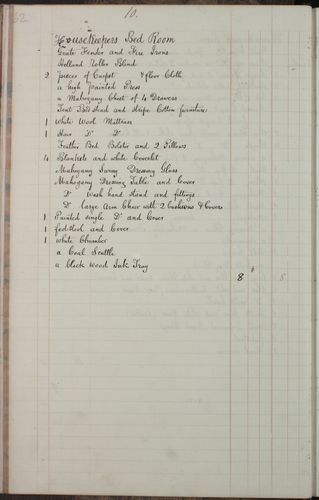 32
10.
Housekeepers Bed Room
Grate Fender and Fire Irons
Holland Roller Blind
2 pieces of Carpet & floor Cloth
a high painted Press
a Mahogany Chest of 4 Drawers
Tent Bed Stead and Stripe Cotton furniture
1 White Wool Mattress
1 Hair Do Do
Feather Bed Bolster and 2 Pillows
4 Blankets and white Coverlet
Mahogany Swing Dressing Glass
Mahogany Dressing Table and Cover
Do Wash hand Stand and fittings
Do large Arm Chair with 2 Cushions & Covers
1 Painted single Do and Cover
1 footstool and Cover
1 White Chamber
a Coal Scuttle
a black wood Ink Tray
8 " 8